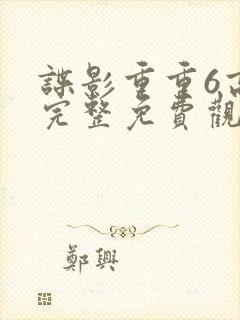 諜影重重6
完整免費觀
鄭興